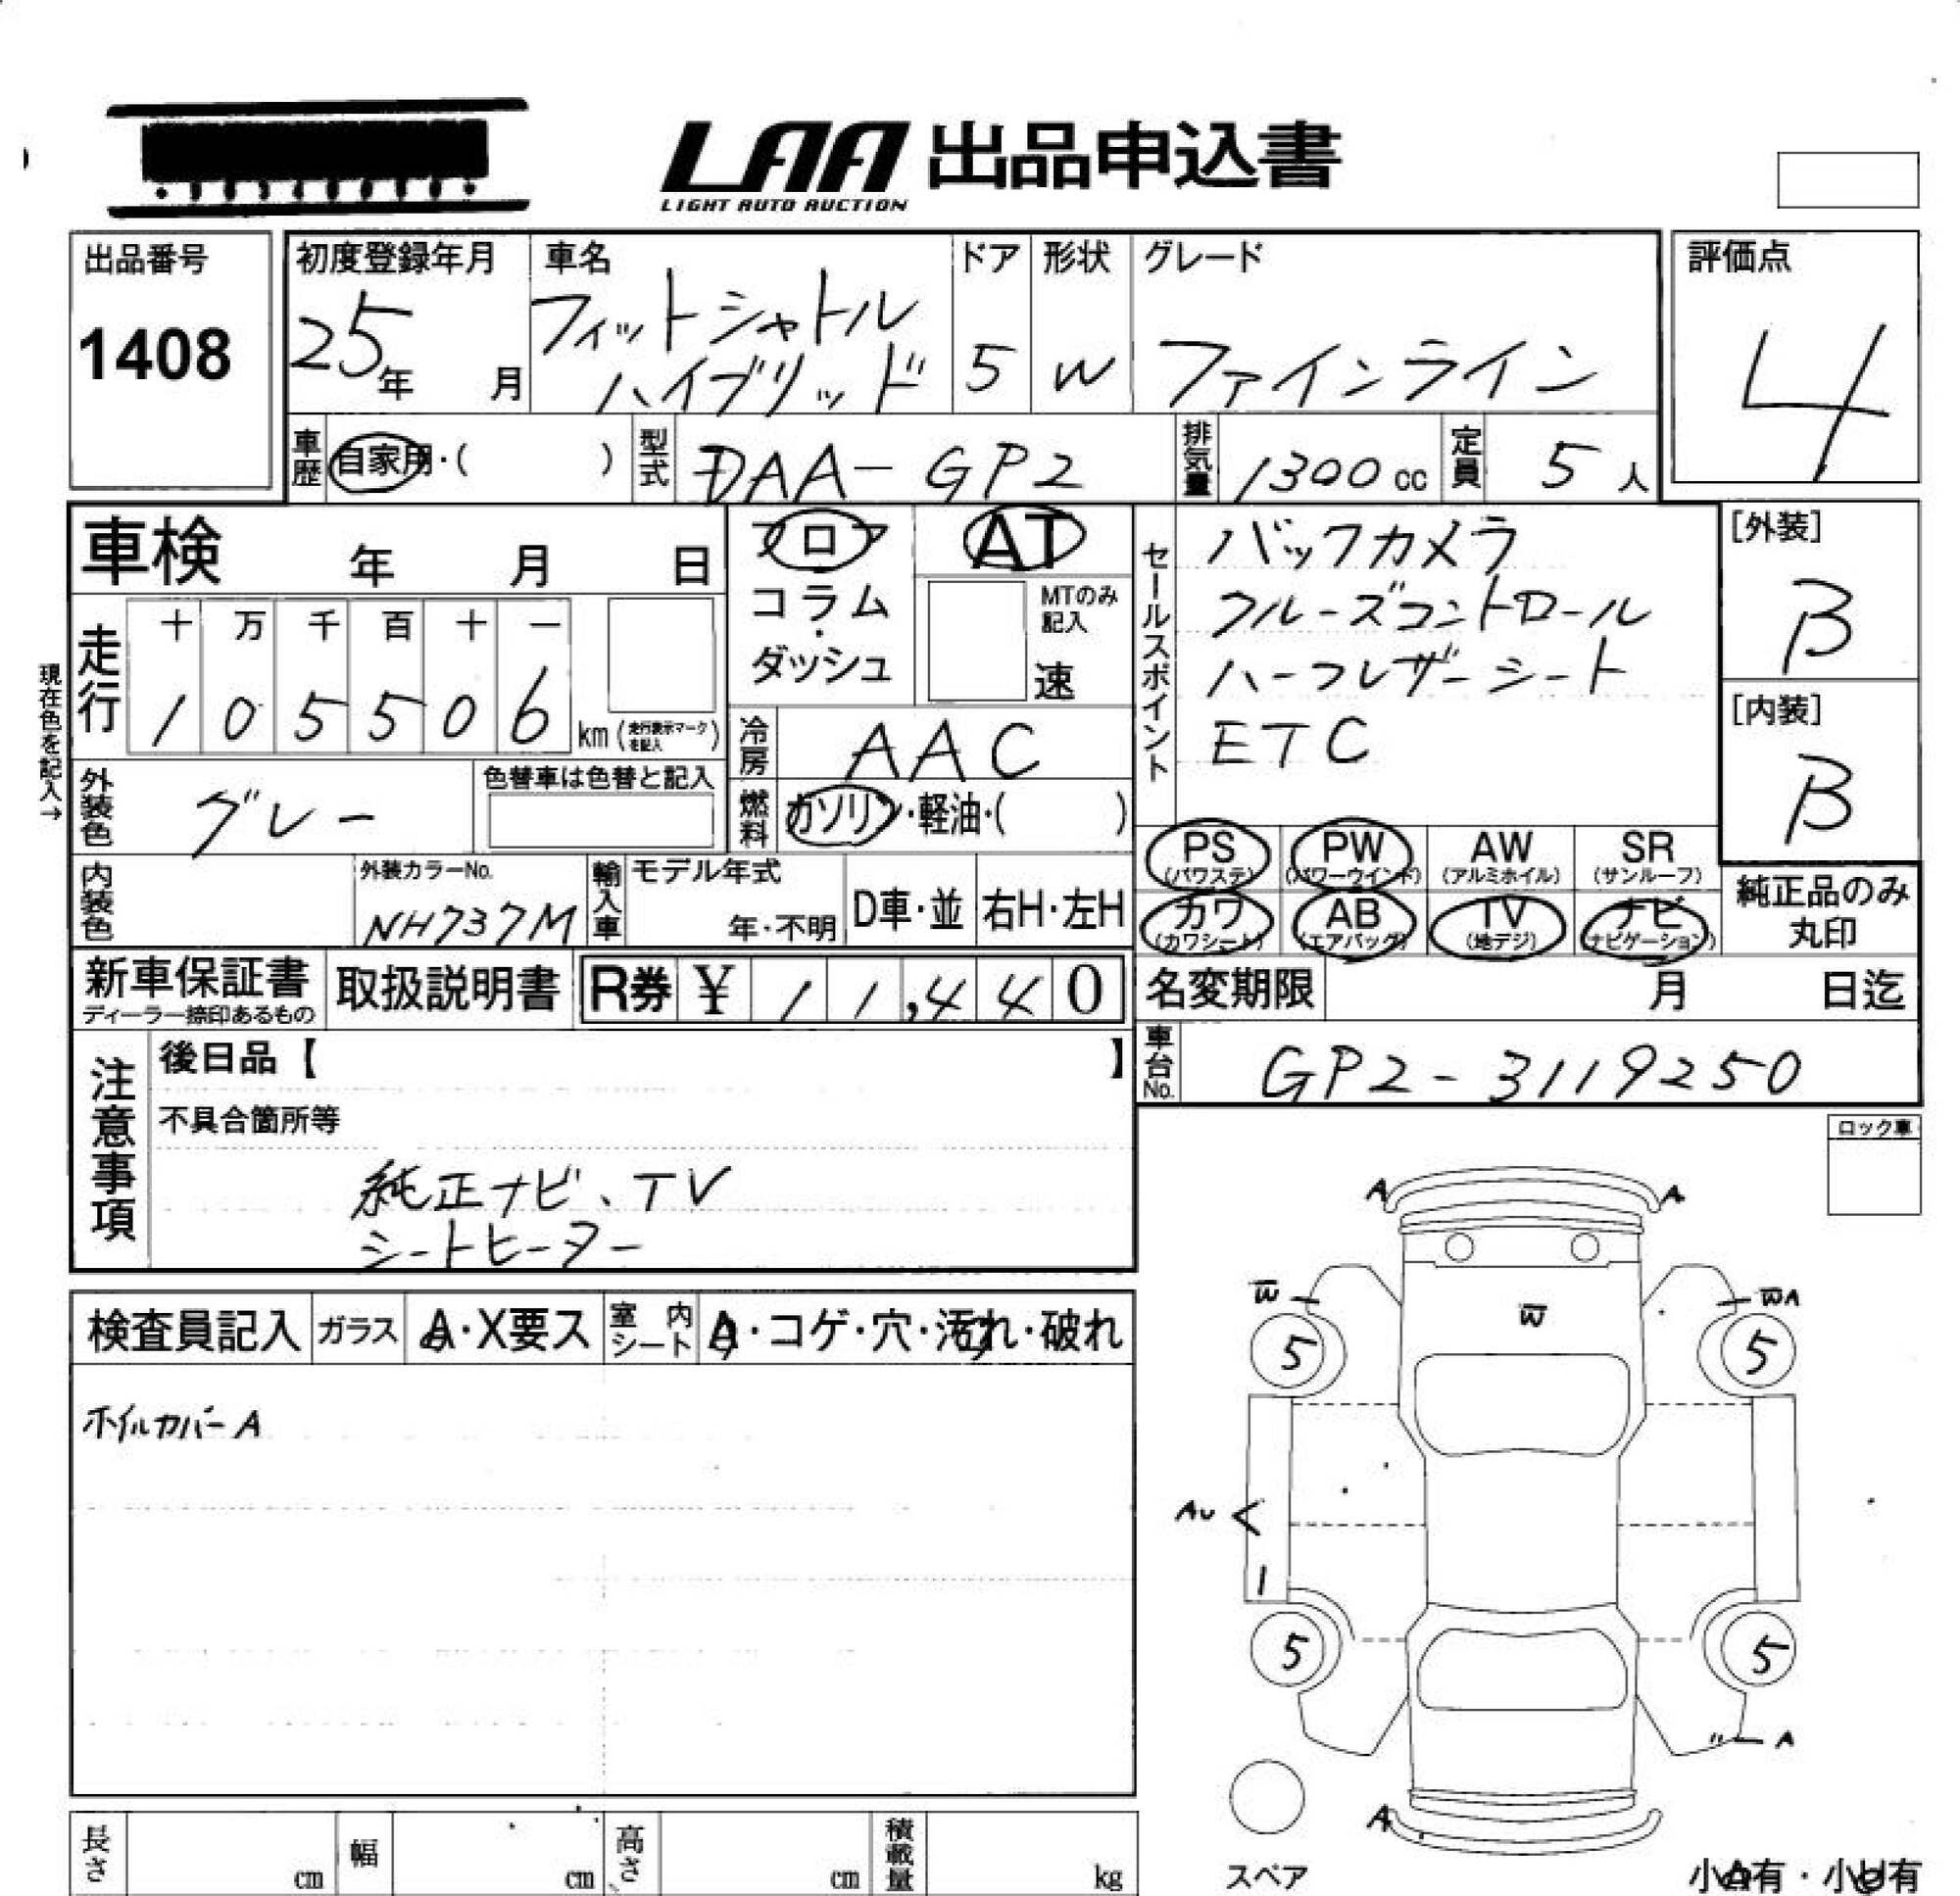 LAA 出品申込書
LIGHT AUTO AUCTION
出品番号
1408
初度登録年月
25年 月
車名
フィットシャトル
ハイブリッド
ドア
5
形状
W
グレード
ファインライン
評価点
4
車歴 自家用・( )
型式 DAA-GP2
排気量 1300cc
定員 5人
車検 年 月 日
フロア
コラム
・
ダッシュ
AT
MTのみ
記入
速
セールスポイント
バックカメラ
クルーズコントロール
ハーフレザーシート
ETC
[外装]
B
[内装]
B
現在色を記入→
走行
十 万 千 百 十 一
1 0 5 5 0 6 km(走行表示マークを記入)
冷房 AAC
外装色 グレー
色替車は色替と記入
燃料 ガソリン・軽油・( )
PS
(パワステ)
PW
(パワーウインド)
AW
(アルミホイル)
SR
(サンルーフ)
カワ
(カワシート)
AB
(エアバッグ)
TV
(地デジ)
ナビ
(ナビゲーション)
純正品のみ
丸印
内装色
外装カラーNo.
NH737M
輸入車
モデル年式
年・不明
D車・並
右H・左H
新車保証書
ディーラー捺印あるもの
取扱説明書
R券 ¥ 1 1,4 4 0
名変期限 月 日迄
車台No. GP2-3119250
注意事項
後日品【 】
不具合箇所等
純正ナビ、TV
シートヒーター
ロック車
検査員記入
ガラス
A・X要ス
室内
シート
A・コゲ・穴・汚れ・破れ
ホイルカバーA
A A
W W WA
5 5
AU
1
5 5
A
A
スペア
小A有・小U有
長さ cm
幅 cm
高さ cm
積載量 kg